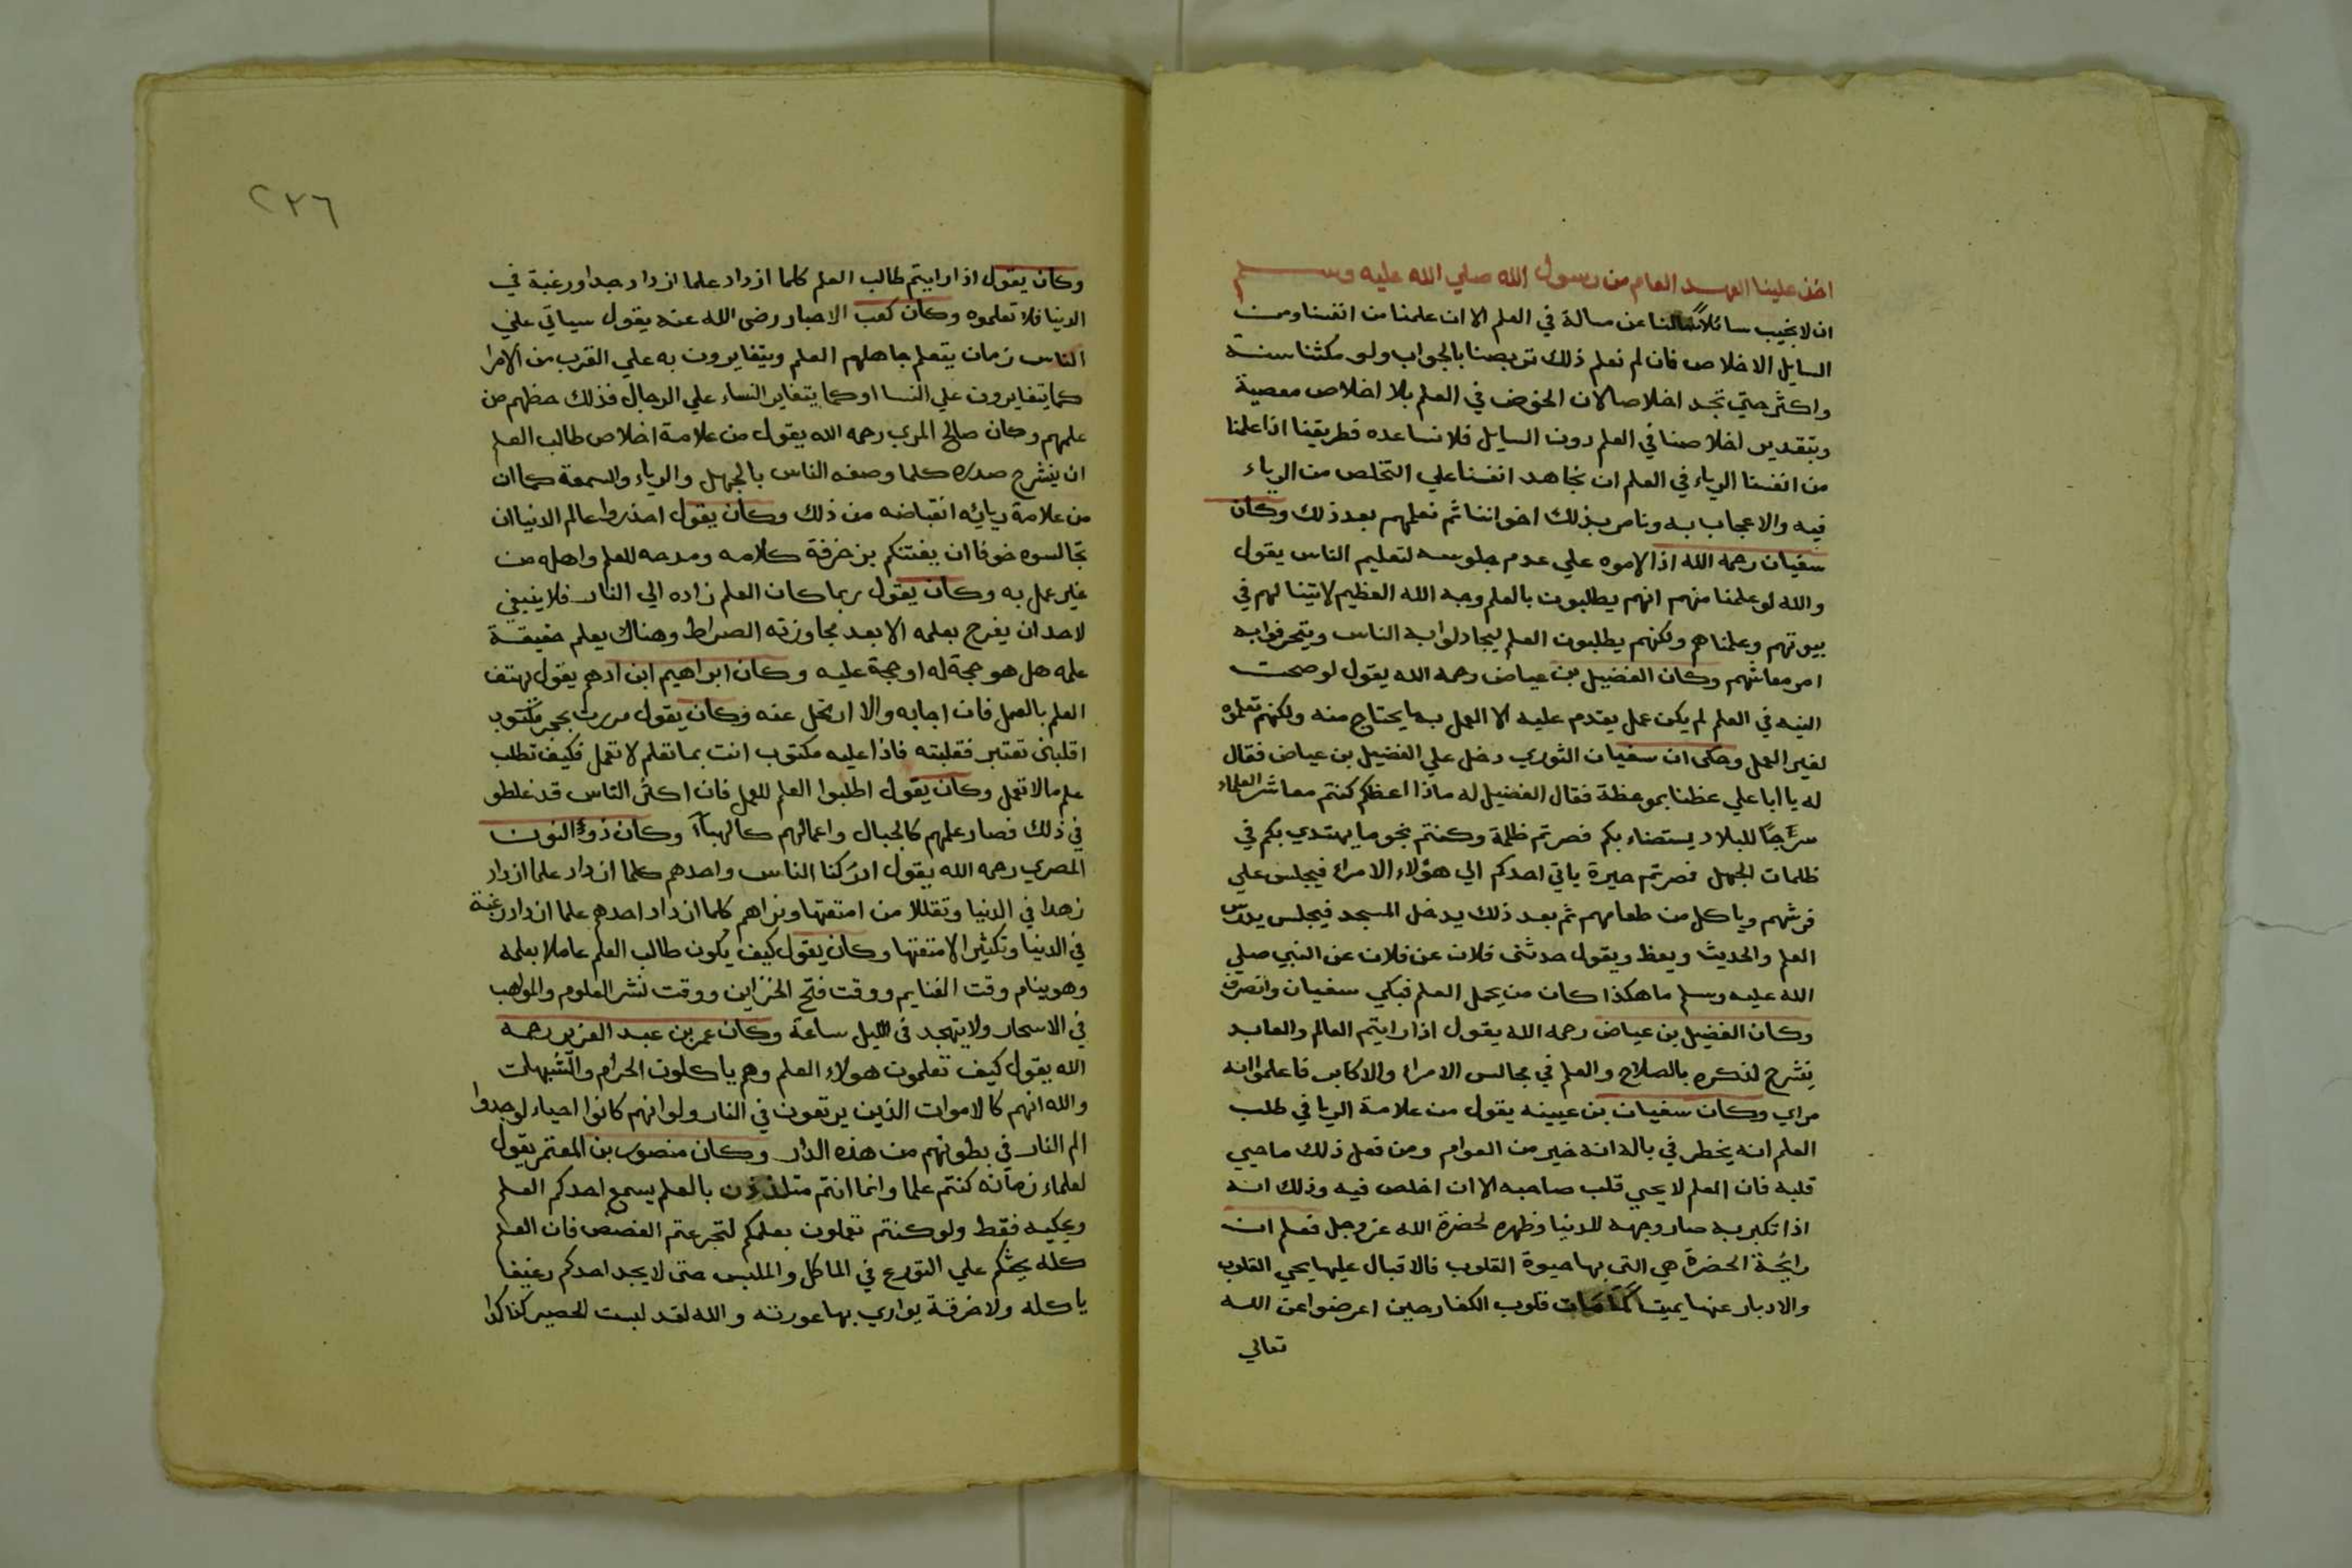 اخذ علينا العهد العام من رسول الله صلي الله عليه وسلم
ان لا نجيب سائلا سالنا عن مسالة في العلم الا ان علمنا من انفسنا ومن
السايل الاخلاص فان لم نعلم ذلك تربصنا بالجواب ولو مكثنا سنة
واكثر حتي نجد اخلاصا لان الخوض في العلم بلا اخلاص معصية
وبتقدير اخلاصنا في العلم دون السايل فلا نساعده فطريقنا اذا علمنا
من انفسنا الرياء في العلم ان نجاهد انفسنا علي التخلص من الرياء
فيه والاعجاب به ونامر بذلك اخواننا ثم نعلمهم بعد ذلك وكان
سفيان رحمه الله اذا لاموه علي عدم جلوسه لتعليم الناس يقول
والله لو علمنا منهم انهم يطلبون بالعلم وجه الله العظيم لاتينا لهم في
بيوتهم وعلمناهم ولكنهم يطلبون العلم ليجادلوا به الناس ويتحرفوا به
امر معاشهم وكان الفضيل بن عياض رحمه الله يقول لو صحت
النيه في العلم لم يكن عمل يقدم عليه الا العمل بما يحتاج منه ولكنهم تعلموه
لغير العمل وحكى ان سفيان الثوري دخل علي الفضيل بن عياض فقال
له يا ابا علي عظنا بموعظة فقال الفضيل له ماذا اعظكم كنتم معاشر العلماء
سرجا للبلاد يستضاء بكم فصرتم ظلمة وكنتم نجوما يهتدي بكم في
ظلمات الجهل فصرتم حيرة ياتي احدكم الي هؤلاء الامراء فيجلس علي
فرشهم وياكل من طعامهم ثم بعد ذلك يدخل المسجد فيجلس يدرس
العلم والحديث ويعظ ويقول حدثنى فلان عن فلان عن النبي صلي
الله عليه وسلم ما هكذا كان من يحمل العلم فبكي سفيان وانصرف
وكان الفضيل بن عياض رحمه الله يقول اذا رايتم العالم والعابد
ينشرح لذكره بالصلاح والعلم في مجالس الامراء والاكابر فاعلموا انه
مراي وكان سفيان بن عيينه يقول من علامة الريا في طلب
العلم انه يخطر في باله انه خير من العوام ومن فعل ذلك ما حيي
قلبه فان العلم لا يحيي قلب صاحبه الا ان اخلص فيه وذلك انه
اذا تكبر به صار وجهه للدنيا وظهره لحضرة الله عز وجل فعلم ان
رائحة الحضرة هي التي بها حيوة القلوب فالاقبال عليها يحي القلوب
والادبار عنها يميتها كما مات قلوب الكفار حين اعرضوا عن الله
تعالي
٢٣٦
وكان يقول اذا رايتم طالب العلم كلما ازداد علما ازداد جدا ورغبة في
الدنيا فلا تعلموه وكان كعب الاحبار رضى الله عنه يقول سياتي علي
الناس زمان يتعلم جاهلهم العلم ويتغايرون به علي القرب من الامرا
كما يتغايرون علي النسا او كما يتغاير النساء علي الرجال فذلك حظهم من
علمهم وكان صالح المري رحمه الله يقول من علامة اخلاص طالب العلم
ان ينشرح صدره كلما وصفه الناس بالجهل والرياء والسمعة كما ان
من علامة ريائه انقباضه من ذلك وكان يقول احذروا عالم الدنيا ان
تجالسوه خوفا ان يفتنكم بزخرفة كلامه ومدحه للعلم واهله من
غير عمل به وكان يقول ربما كان العلم زاده الي النار فلا ينبغي
لاحد ان يفرح بعلمه الا بعد مجاوزته الصراط وهناك يعلم حقيقة
علمه هل هو حجة له او حجة عليه وكان ابراهيم ابن ادهم يقول يهتف
العلم بالعمل فان اجابه والا ارتحل عنه وكان يقول مررت بحجر مكتوب
اقلبنى تعتبر فقلبته فاذا عليه مكتوب انت بما تعلم لا تعمل فكيف تطلب
علم ما لا تعمل وكان يقول اطلبوا العلم للعمل فان اكثر الناس قد غلطو
في ذلك فصار علمهم كالجبال واعمالهم كالهباآ وكان ذو النون
المصري رحمه الله يقول ادركنا الناس واحدهم كلما ازداد علما ازداد
زهدا في الدنيا وتقللا من امتعتها ونراهم كلما ازداد احدهم علما ازداد رغبة
في الدنيا وتكثيرا لامتعتها وكان يقول كيف يكون طالب العلم عاملا بعلمه
وهو ينام وقت الغنايم ووقت فتح الخزاين ووقت نشر العلوم والمواهب
في الاسحار ولا يتهجد فى الليل ساعة وكان عمر بن عبد العزيز رحمه
الله يقول كيف تعلمون هولاء العلم وهم ياكلون الحرام والشبهات
والله انهم كالاموات الذين يرتعون في النار ولو انهم كانوا احياء لوجدوا
الم النار في بطونهم من هذه الدار وكان منصور بن المعتمر يقول
لعلماء زمانه كنتم علما وانما انتم متلذذون بالعلم يسمع احدكم العلم
ويحكيه فقط ولو كنتم تعملون بعلمكم لتجرعتم الغصص فان العلم
كله يحثكم علي التورع في الماكل والملبس حتى لا يجد احدكم رغيفا
ياكله ولا خرقة يواري بها عورته والله لقد لبست الحصير كذا كذا